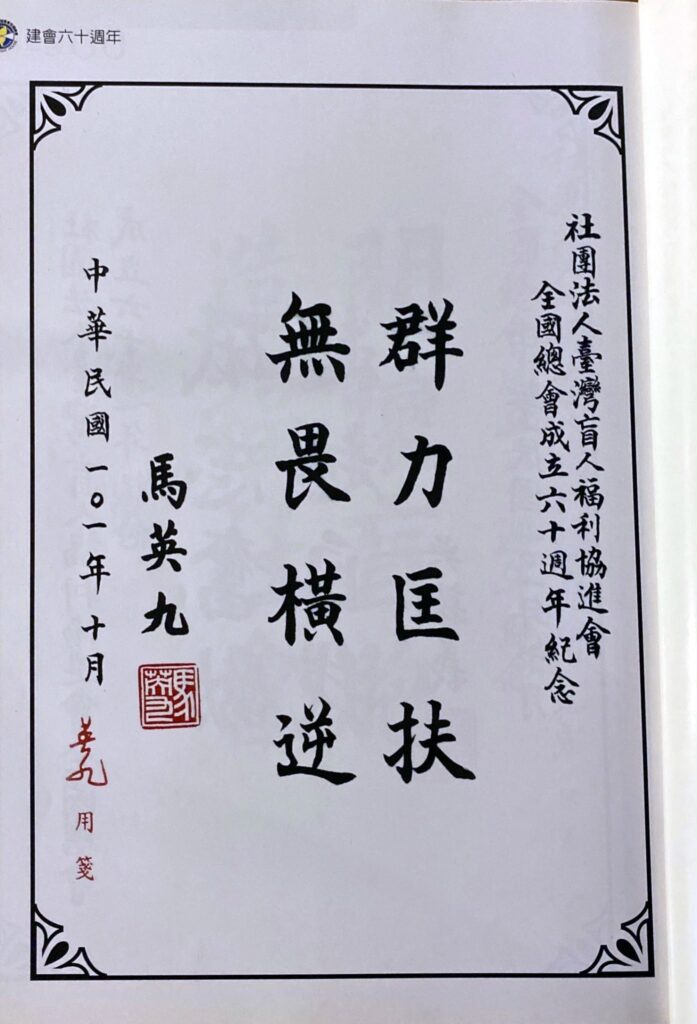 建會六十週年
社團法人臺灣盲人福利協進會
全國總會成立六十週年紀念
群力匡扶
無畏橫逆
馬英九
馬英九
中華民國一〇一年十月
英九用箋